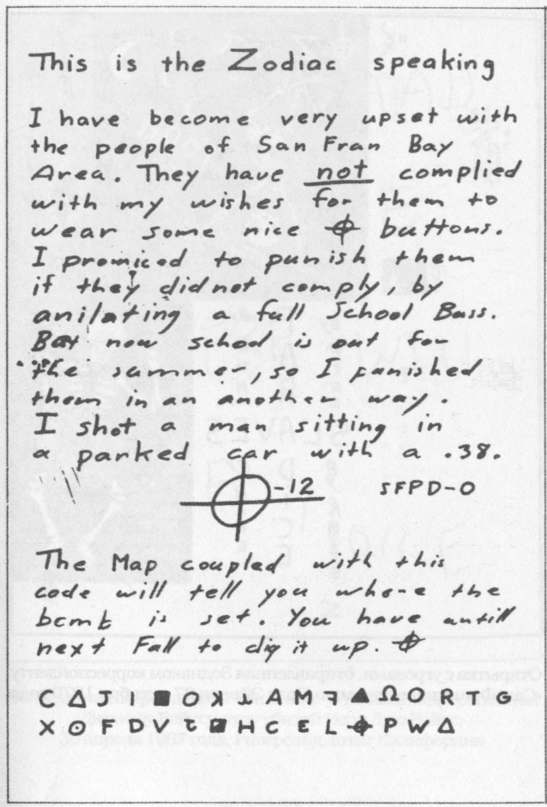 This is the Zodiac speaking
I have become very upset with
the people of San Fran Bay
Area. They have not complied
with my wishes for them to
wear some nice ⌖ buttons.
I promiced to punish them
if they did not comply, by
anilating a full School Buss.
But now school is out for
the summer, so I punished
them in an another way.
I shot a man sitting in
a parked car with a .38.
⌖-12 SFPD-0
The Map coupled with this
code will tell you where the
bomb is set. You have untill
next Fall to dig it up. ⌖
C Δ J I ■ O ⅄ A M ▲ Ω O R T G
X ⊙ F D V H C E L ⌖ P W Δ